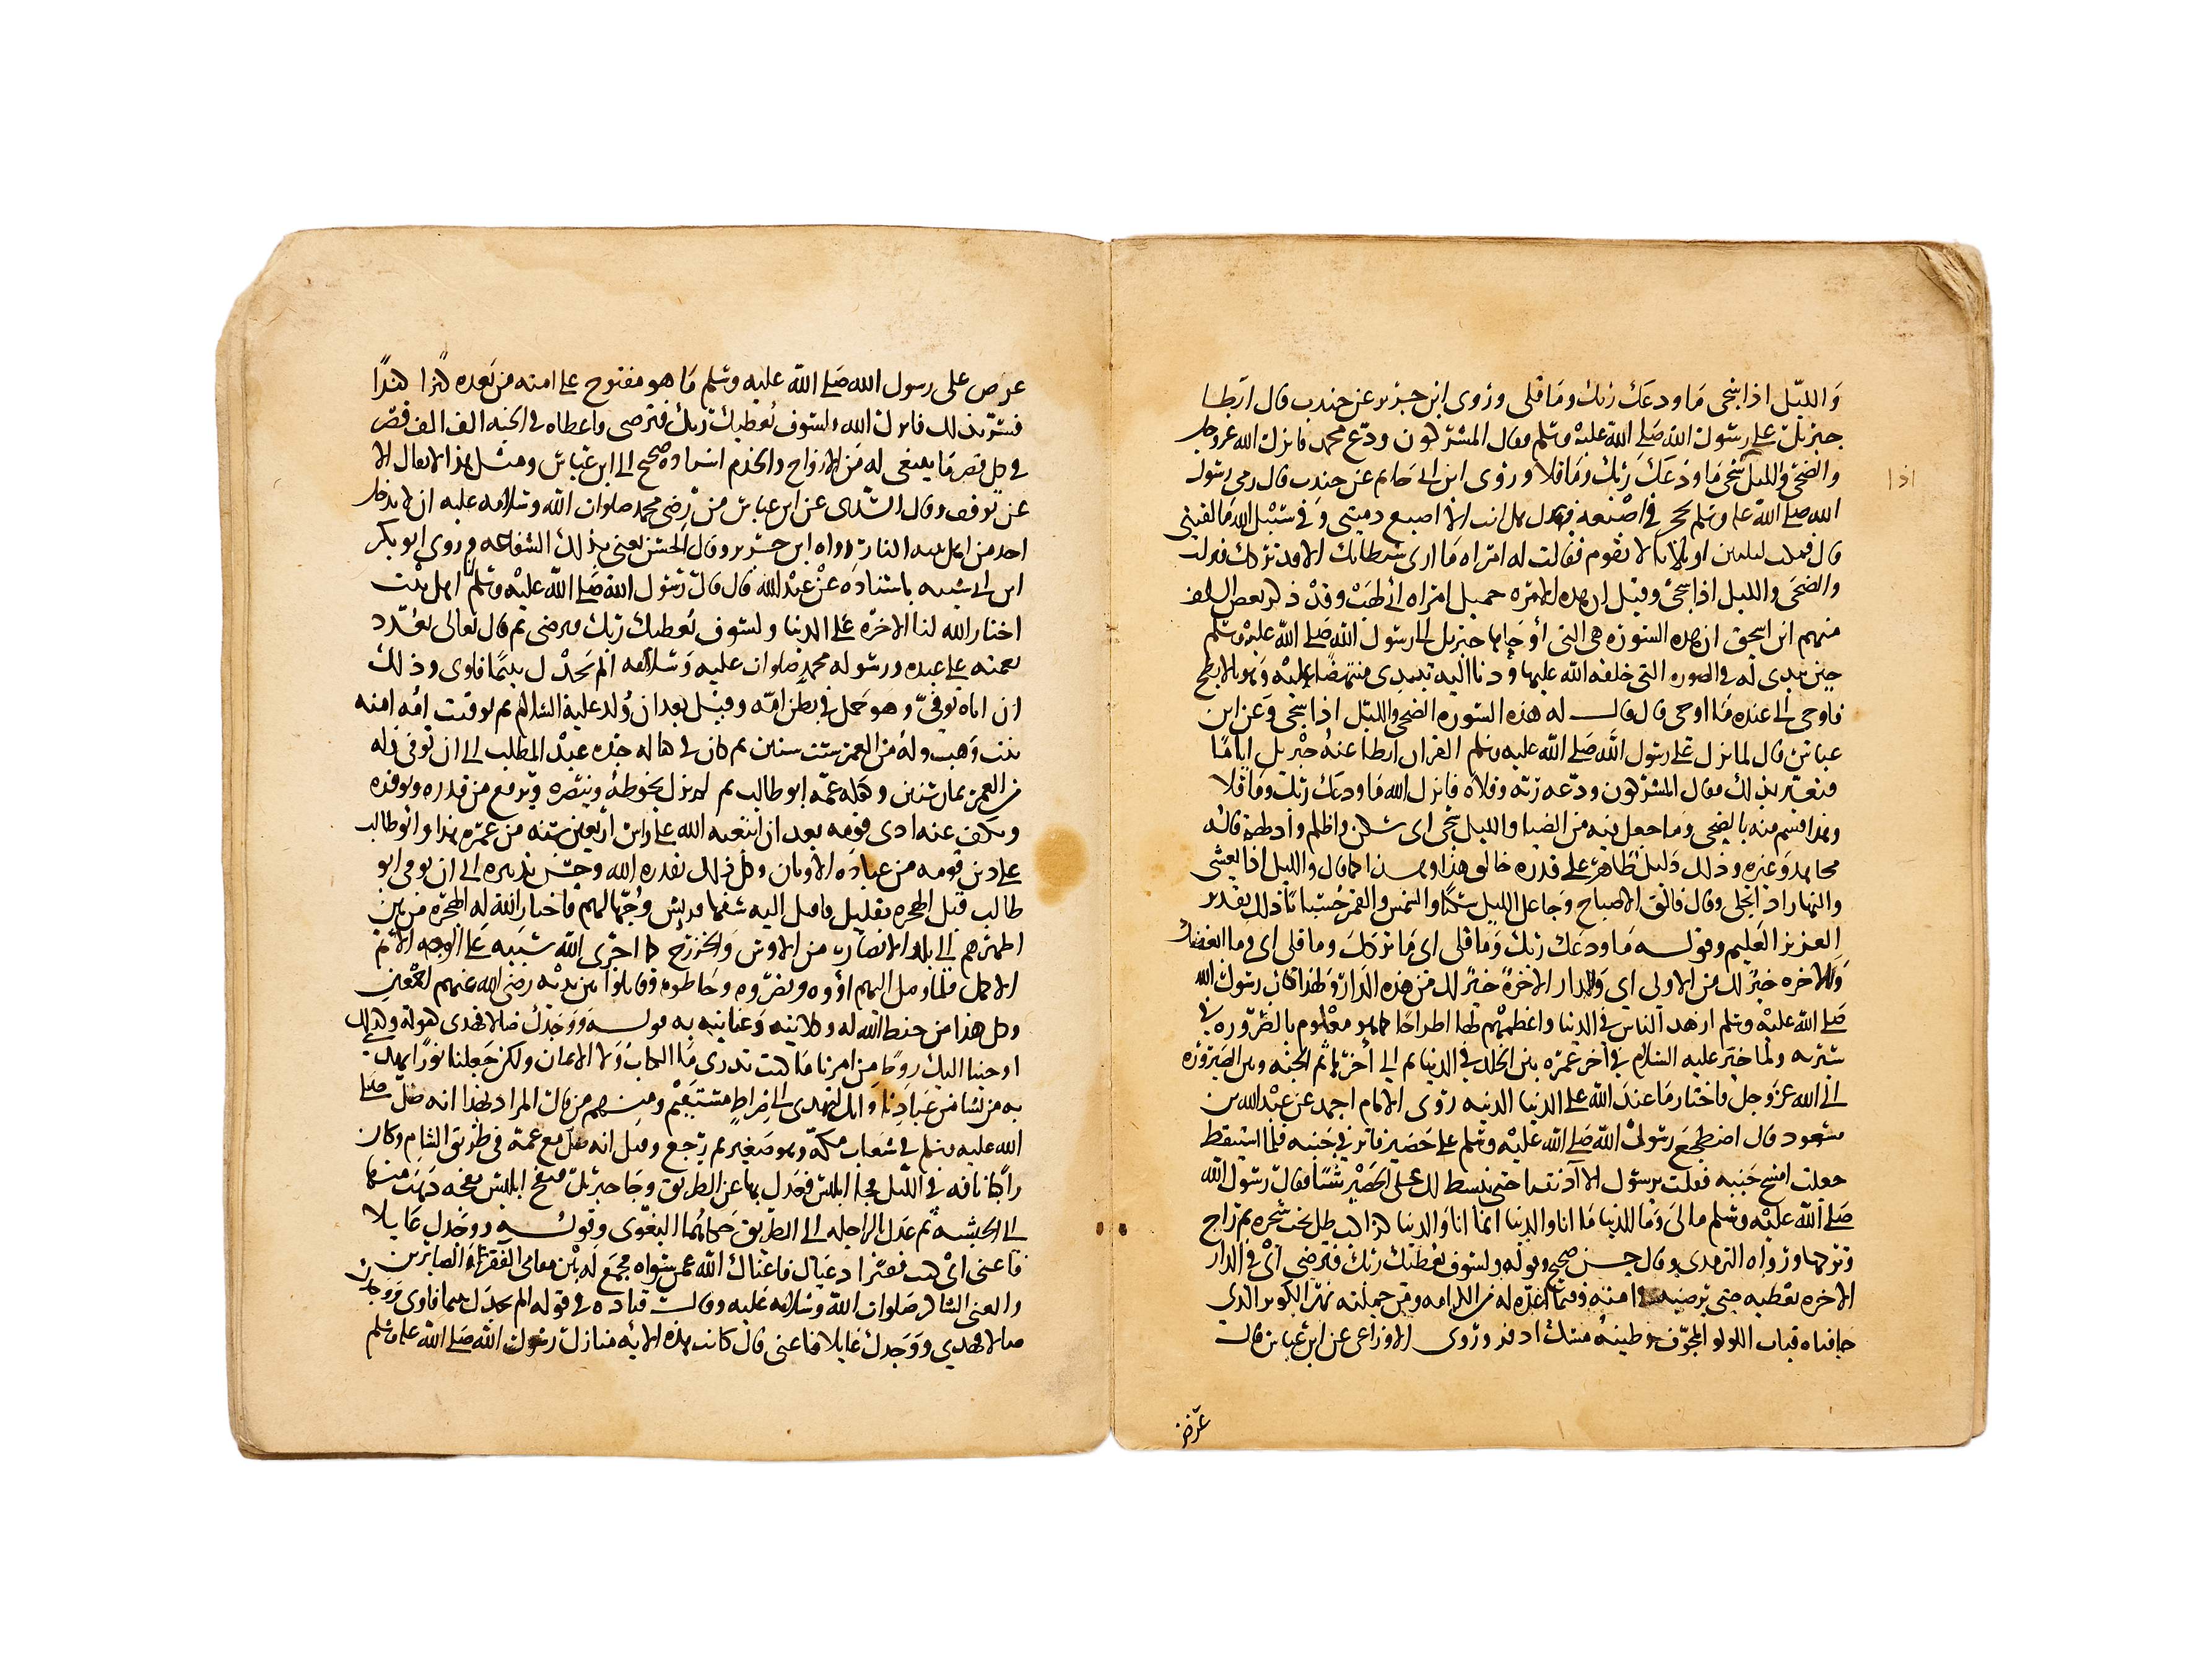 والليل اذا سجى ما ودعك ربك وما قلى وروى ابن جرير عن جندب قال ابطا
جبريل على رسول الله صلى الله عليه وسلم فقال المشركون ودع محمد فانزل الله عز وجل
والضحى والليل سجى ما ودعك ربك وما قلا وروى ابن ابي حاتم عن جندب قال رمي رسول
اذا
الله صلى الله عليه وسلم بحجر في اصبعه فقال هل انت الا اصبع دميتي وفي سبيل الله ما لقيتي
قال فمكث ليلتين او ثلاثا لا يقوم فقالت له امراه ما ارى شيطانك الا قد تركك فنزلت
والضحى والليل اذا سجى وقيل ان هذه المراه ام جميل امراه ابي لهب وقد ذكر بعض السلف
منهم ابن اسحق ان هذه السوره هي التي اوحاها جبريل الى رسول الله صلى الله عليه وسلم
حين تبدى له في الصوره التي خلقه الله عليها ودنا اليه وتدلى منهبطا عليه وهو بالابطح
فاوحى الى عبده ما اوحى قال قال له هذه السوره الضحى والليل اذا سجى وعن ابن
عباس قال لما نزل على رسول الله صلى الله عليه وسلم القران ابطا عنه جبريل اياما
فتغير بذلك فقال المشركون ودعه ربه وقلاه فانزل الله ما ودعك ربك وما قلا
وهذا قسم منه بالضحى وما جعل فيه من الضيا والليل سجى اى سكن واظلم وادلهم قاله
مجاهد وغيره وذلك دليل ظاهر على قدره خالق هذا وهذا كما قال والليل اذا يغشى
والنهار اذا تجلى وقال فالق الاصباح وجاعل الليل سكنا والشمس والقمر حسبانا ذلك تقدير
العزيز العليم وقوله ما ودعك ربك وما قلى اى ما تركك وما قلى اى وما ابغضك
وللاخره خير لك من الاولى اي وللدار الاخرة خير لك من هذه الدار ولهذا كان رسول الله
صلى الله عليه وسلم ازهد الناس في الدنيا واعظمهم لها اطراحا كما هو معلوم بالضروره في
سيرته ولما خير عليه السلام في آخر عمره بين الخلد في الدنيا الى آخرها ثم الجنه وبين الصيروره
الى الله عز وجل فاختار ما عند الله على الدنيا الدنيه روى الامام احمد عن عبد الله بن
مسعود قال اضطجع رسول الله صلى الله عليه وسلم على حصير فاثر في جنبه فلما استيقظ
جعلت امسح جنبه فقلت يرسول الله الا آذنتنا حتى نبسط لك على الحصير شيئا فقال رسول الله
صلى الله عليه وسلم ما لى وما للدنيا ما انا والدنيا انما انا والدنيا كراكب ظل تحت شجره ثم راح
وتركها ورواه الترمذى وقال حسن صحيح وقوله ولسوف يعطيك ربك فترضى اى في الدار
الاخره يعطيه حتى يرضيه في امته وفيما اعده له من الكرامه ومن جملته نهر الكوثر الذى
حافتاه قباب اللولو المجوف وطينه مسك اذفر وروى الاوزاعى عن ابن عباس قال
عرض
عرض على رسول الله صلى الله عليه وسلم ما هو مفتوح على امته من بعده كنزا كنزا
فسر بذلك فانزل الله ولسوف يعطيك ربك فترضى واعطاه في الجنه الف الف قصر
في كل قصر ما ينبغى له من الازواج والخدم اسناده صحيح الى ابن عباس ومثل هذا لا يقال الا
عن توقيف وقال السدى عن ابن عباس من رضى محمد صلوات الله وسلامه عليه ان لا يدخل
احد من اهل بيته النار رواه ابن جرير وقال الحسن يعنى بذلك الشفاعه وروى ابو بكر
ابن ابي شيبه باسناده عن عبد الله قال قال رسول الله صلى الله عليه وسلم انا اهل بيت
اختار الله لنا الاخره على الدنيا ولسوف يعطيك ربك فترضى ثم قال تعالى يعدد
نعمته على عبده ورسوله محمد صلوات عليه وسلامه الم يجدك يتيما فاوى وذلك
ان اباه توفى وهو حمل في بطن امه وقيل بعد ان ولد عليه السلام ثم توفيت امه امنه
بنت وهب وله من العمر ست سنين ثم كان في كفاله جده عبد المطلب الى ان توفى وله
من العمر ثمان سنين وكفله عمه ابو طالب ثم لم يزل يحوطه وينصره ويرفع من قدره ويوقره
ويكف عنه اذى قومه بعد ان ابتعثه الله على راس اربعين سنه من عمره هذا وابو طالب
على دين قومه من عباده الاوثان وكل ذلك بقدره الله وحسن تدبيره الى ان توفى ابو
طالب قبل الهجره بقليل فاقبل اليه سفها قريش وجهالهم فاختار الله له الهجره من بين
اظهرهم الى بلد الانصار من الاوس والخزرج كما اجرى الله سنته على الوجه الاتم
الاكمل فلما وصل اليهم اووه ونصروه وحاطوه وقاتلوا بين يديه رضى الله عنهم اجمعين
وكل هذا من حفظ الله له وكلايته وعنايته به وقوله ووجدك ضالا فهدى كقوله وكذلك
اوحينا اليك روحا من امرنا ما كنت تدرى ما الكتاب ولا الايمان ولكن جعلنا نورا نهدى
به من نشا من عبادنا وانك لتهدى الى صراط مستقيم ومنهم من قال المراد بهذا انه ضل صلى
الله عليه وسلم في شعاب مكه وهو صغير ثم رجع وقيل انه ضل مع عمه في طريق الشام وكان
راكبا ناقه في الليل فجا ابليس فعدل بها عن الطريق وجا جبريل فنفخ ابليس نفخه ذهب منها
الى الحبشه ثم عدل بالراحله الى الطريق حكاهما البغوى وقوله ووجدك عايلا
فاغنى اى كنت فقيرا ذ عيال فاغناك الله عمن سواه فجمع له بين مقامى الفقير الصابر
والغنى الشاكر صلوات الله وسلامه عليه وقال قتاده في قوله الم يجدك يتيما فاوى ووجدك
ضالا فهدي ووجدك عايلا فاغنى قال كانت هذه الايه منازل رسول الله صلى الله عليه وسلم